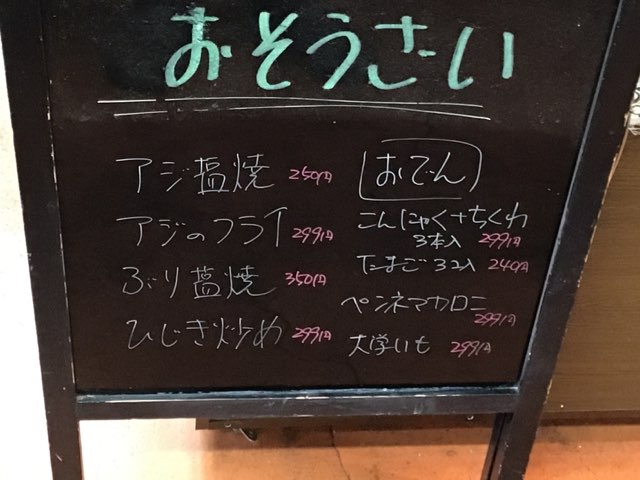 おそうざい
アジ塩焼 250円
アジのフライ 299円
ぶり塩焼 350円
ひじき炒め 299円
おでん
こんにゃく+ちくわ
3本入 299円
たまご 3コ入 240円
ペンネマカロニ
299円
大学いも 299円